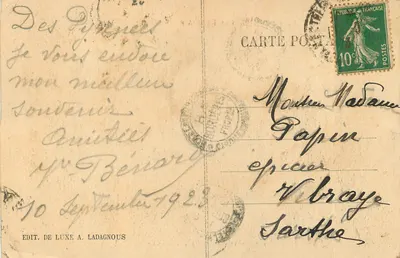 Des Pyrénées
je vous envoie
mon meilleur
souvenir
Amitiés
Bénard
10 Septembre 1923
EDIT. DE LUXE A. LADAGNOUS
CARTE POST
10c
POSTES
Monsieur Madame
Papin
épicier
Vibraye
Sarthe